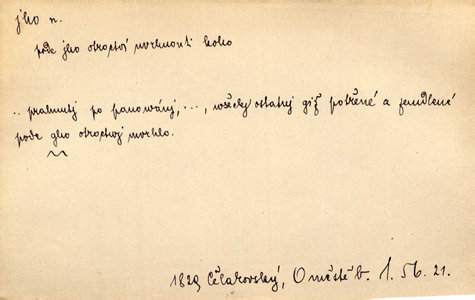 jho n.
pode jho otroctví uvrhnouti koho
.. prahnutj po panowánj, ..., wšecky ostatnj giž potřené a zemdlené
pode gho otroctwj uwrhlo.
1829 Čelakovský, O městě b. 1. 56. 21.